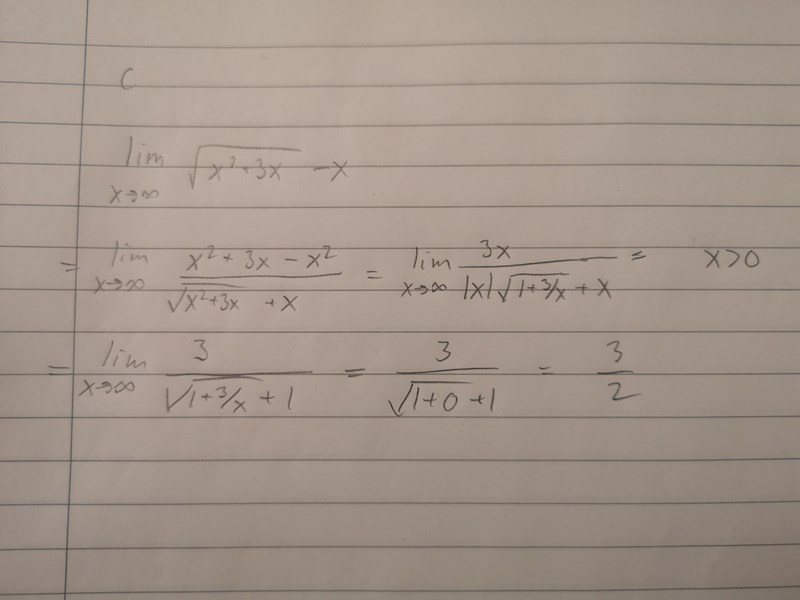 C
lim x→∞ √(x² + 3x) - x
= lim x→∞ (x² + 3x - x²)/(√(x²+3x) + x) = lim x→∞ 3x/(|x|√(1+3/x) + x) = x>0
= lim x→∞ 3/(√(1+3/x) + 1) = 3/(√(1+0) + 1) = 3/2